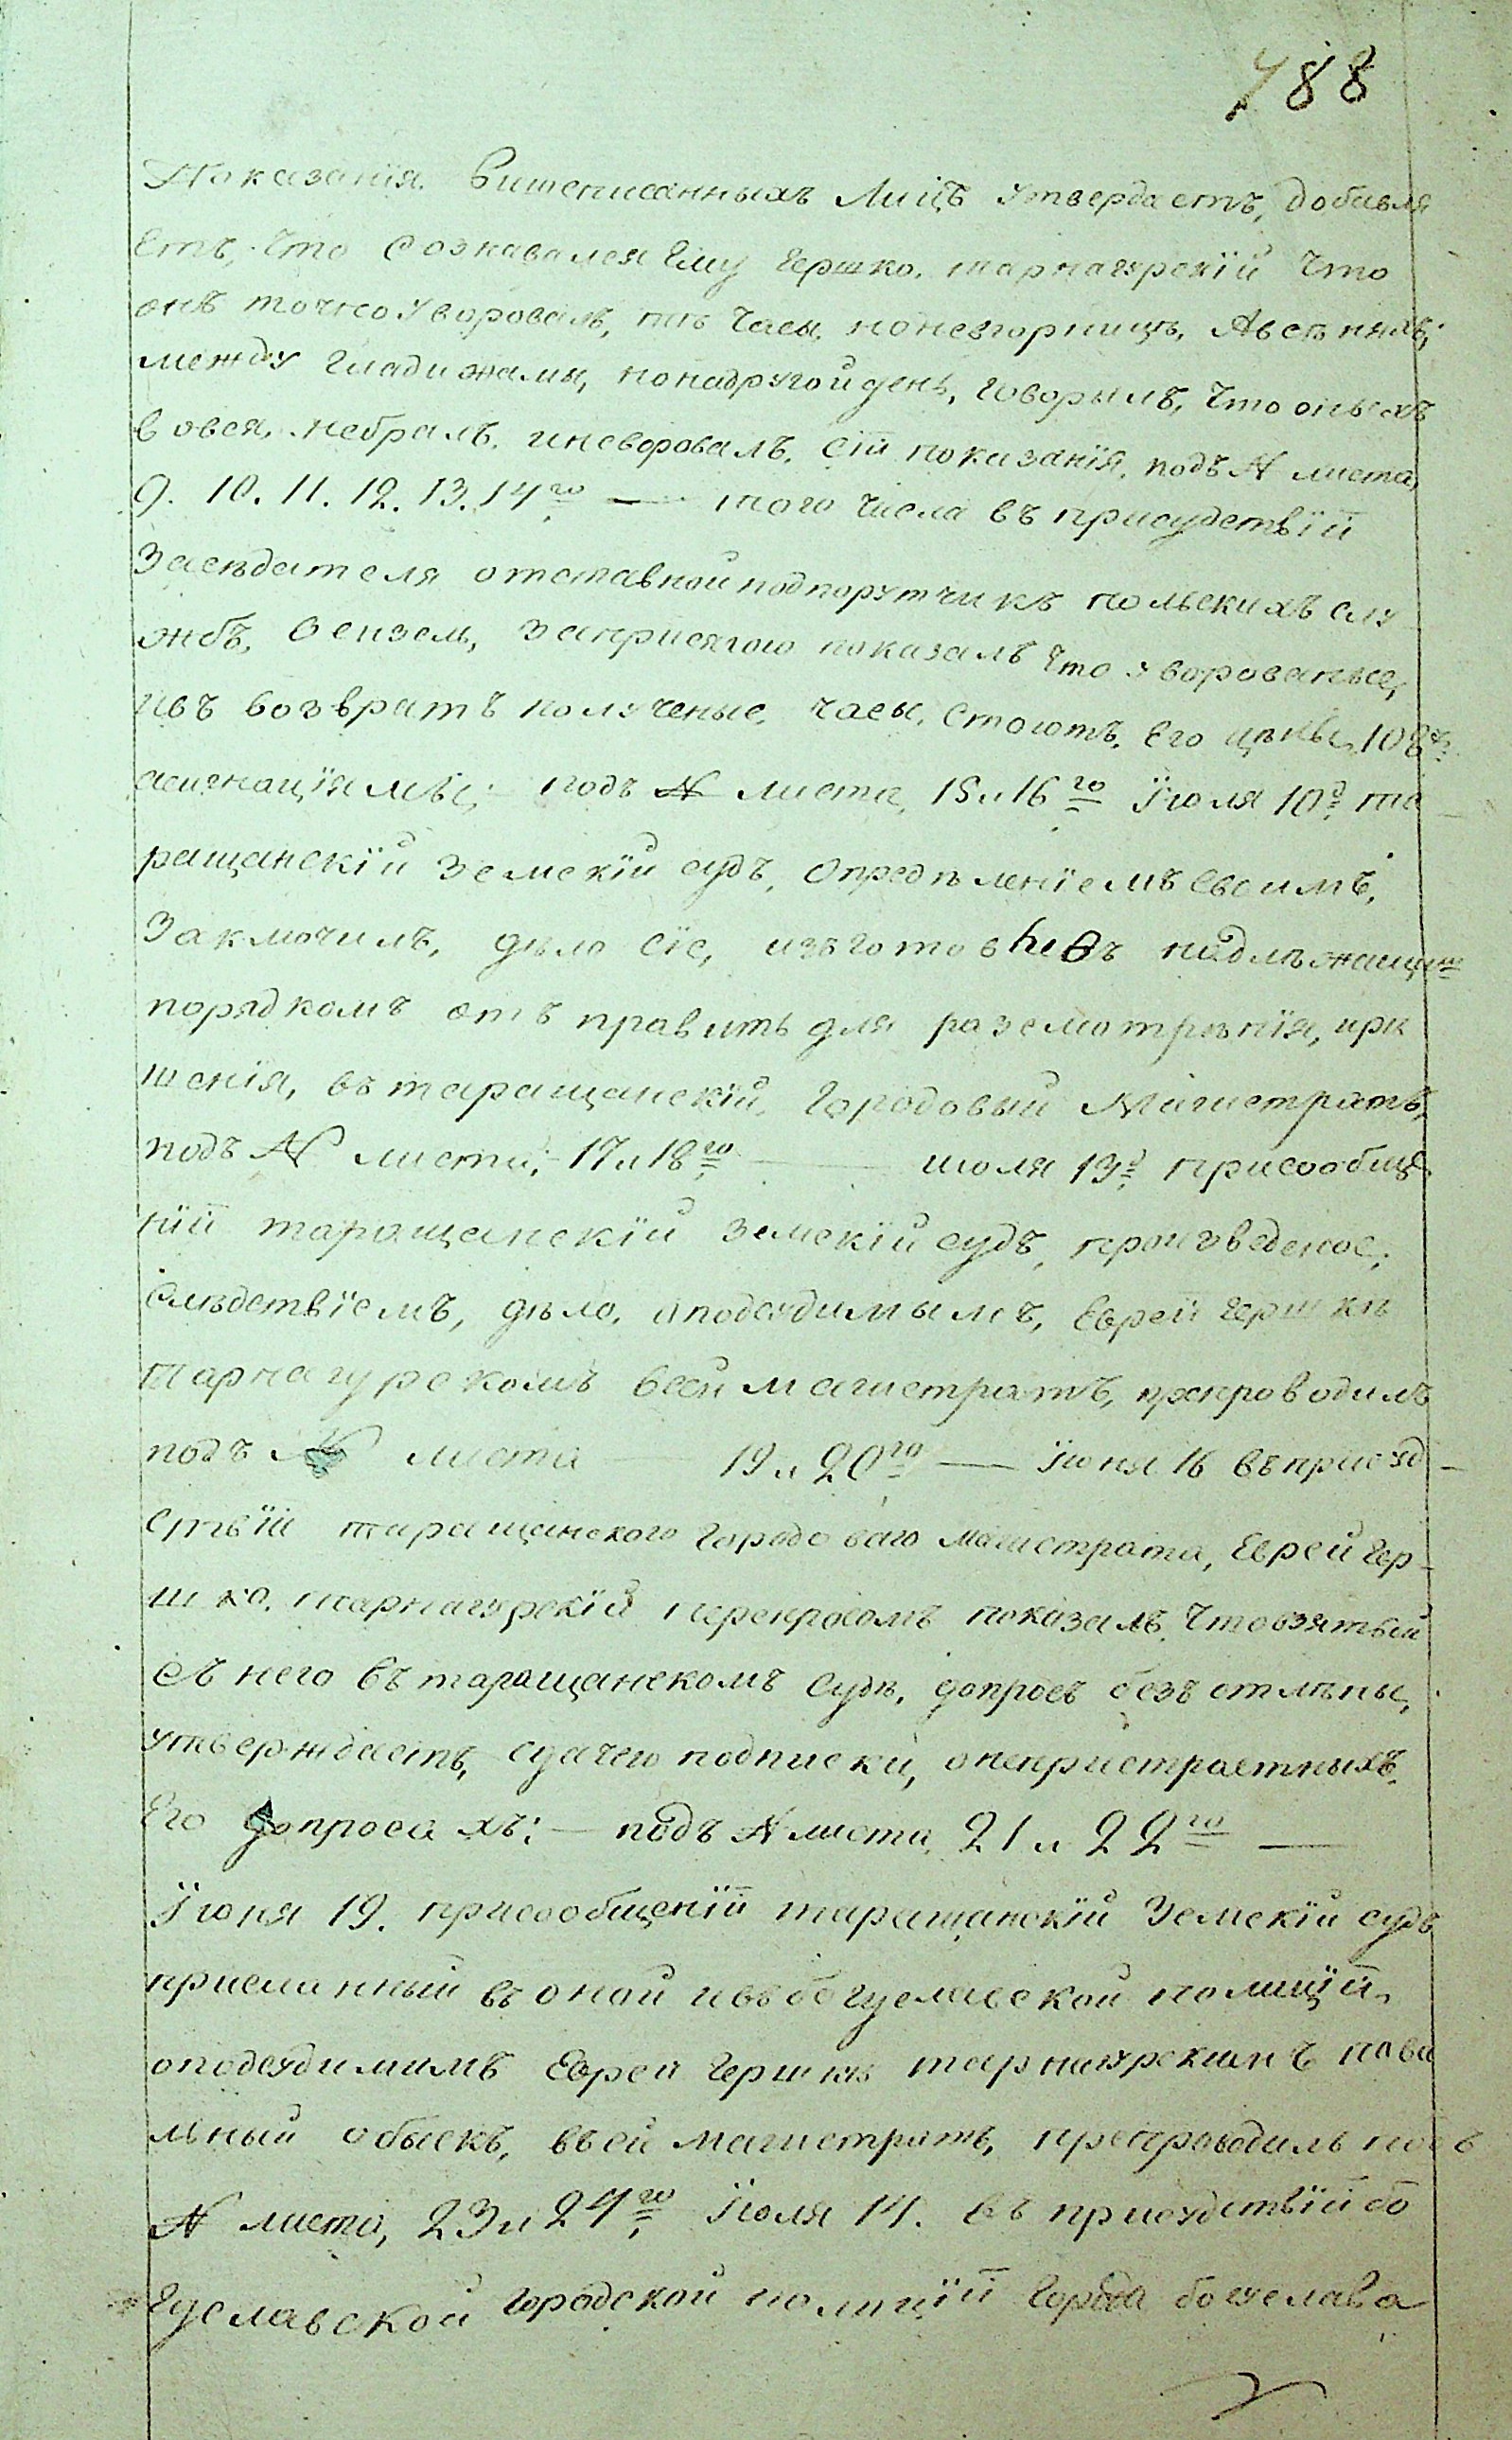 488
Показанїя. Вишеписанныхъ Лицъ утвердаетъ, добавля
етъ, что сознавался ему Гершко. тарнагурскїй что
онъ точно уворовалъ, тѣ часы, но не взгорницѣ, А всѣняхъ,
между гладижамы, но на другой день, говорылъ, что оныхъ
вовся, небралъ. иневоровалъ. сїи показанїя. подъ № листа,
9. 10. 11. 12. 13. 14го — того числа въ присудствїй
Засѣдателя отставной подпорутчикъ польскихъ слу
жбъ, запрысягою показалъ что уворованые,
ивъ возвратъ полученые, часы, стоютъ. его цѣны, 108
асигнацїямы; подъ № листа, 15 и 16го Їюля 10д та
ращанскїй Земскїй судъ, опредѣленїемъ своимъ,
Заключилъ, дѣло сїе, изъготовневъ надлѣжащим
порядкомъ отъправить для разсмотрѣнїя, ирѣ
шенїя, въ таращанскїй, Городовый Магистратъ,
подъ № листа; 17 и 18го — июля 13д присообще
нїй таращанскїй Земскїй судъ, произведеное,
слѣдствїемъ, дѣло, оподсудимымъ, Еврей Гершкѣ
Тарнагурскомъ всей магистратъ, препроводилъ
подъ № листа — 19 и 20го — Їюня 16 въ присуд
ствїй таращанского Городоваго Магистрата, Еврей Гер-
шко, тарнагурскїй перепросомъ показалъ. что взятый
съ него въ таращанскомъ Судѣ, допросъ безъ отмѣны,
утверждаетъ, сдачею подписки, онепристрастныхъ.
Его допросахъ; — подъ № листа, 21 и 22го —
Їюня 19. присообщенїй таращанскїй Земскїй судъ
присланный въ оной изъ богуславской полицїй,
оподсудимимъ Еврей Гершкѣ тарнагурскимъ пова
льный обыскъ, въсей магистратъ, препроводилъ подъ
№ листа, 23 и 24го Їюля 14. въ присудствїй бо
гуславской городской полицїй города богуслава